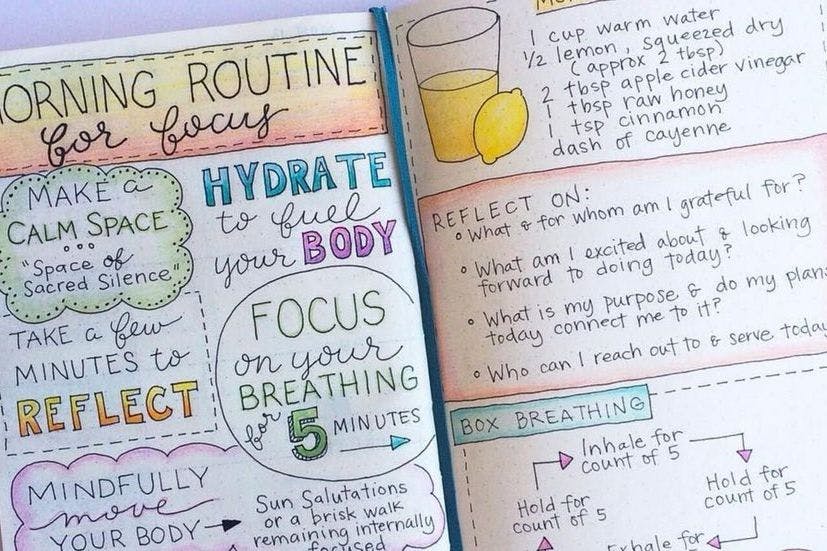 MORNING ROUTINE
for focus
MAKE a
CALM SPACE
"Space of
Sacred Silence"
HYDRATE
to fuel
your BODY
TAKE a few
MINUTES to
REFLECT
FOCUS
on your
BREATHING
for 5 MINUTES
MINDFULLY
move
YOUR BODY
Sun Salutations
or a brisk walk
remaining internally
focused
1 cup warm water
1/2 lemon, squeezed dry
(approx 2 tbsp)
2 tbsp apple cider vinegar
1 tbsp raw honey
1 tsp cinnamon
dash of cayenne
REFLECT ON:
• What & for whom am I grateful for?
• What am I excited about & looking
forward to doing today?
• What is my purpose & do my plans
today connect me to it?
• Who can I reach out to & serve today
BOX BREATHING
Inhale for
count of 5
Hold for
count of 5
Hold for
count of 5
Exhale for